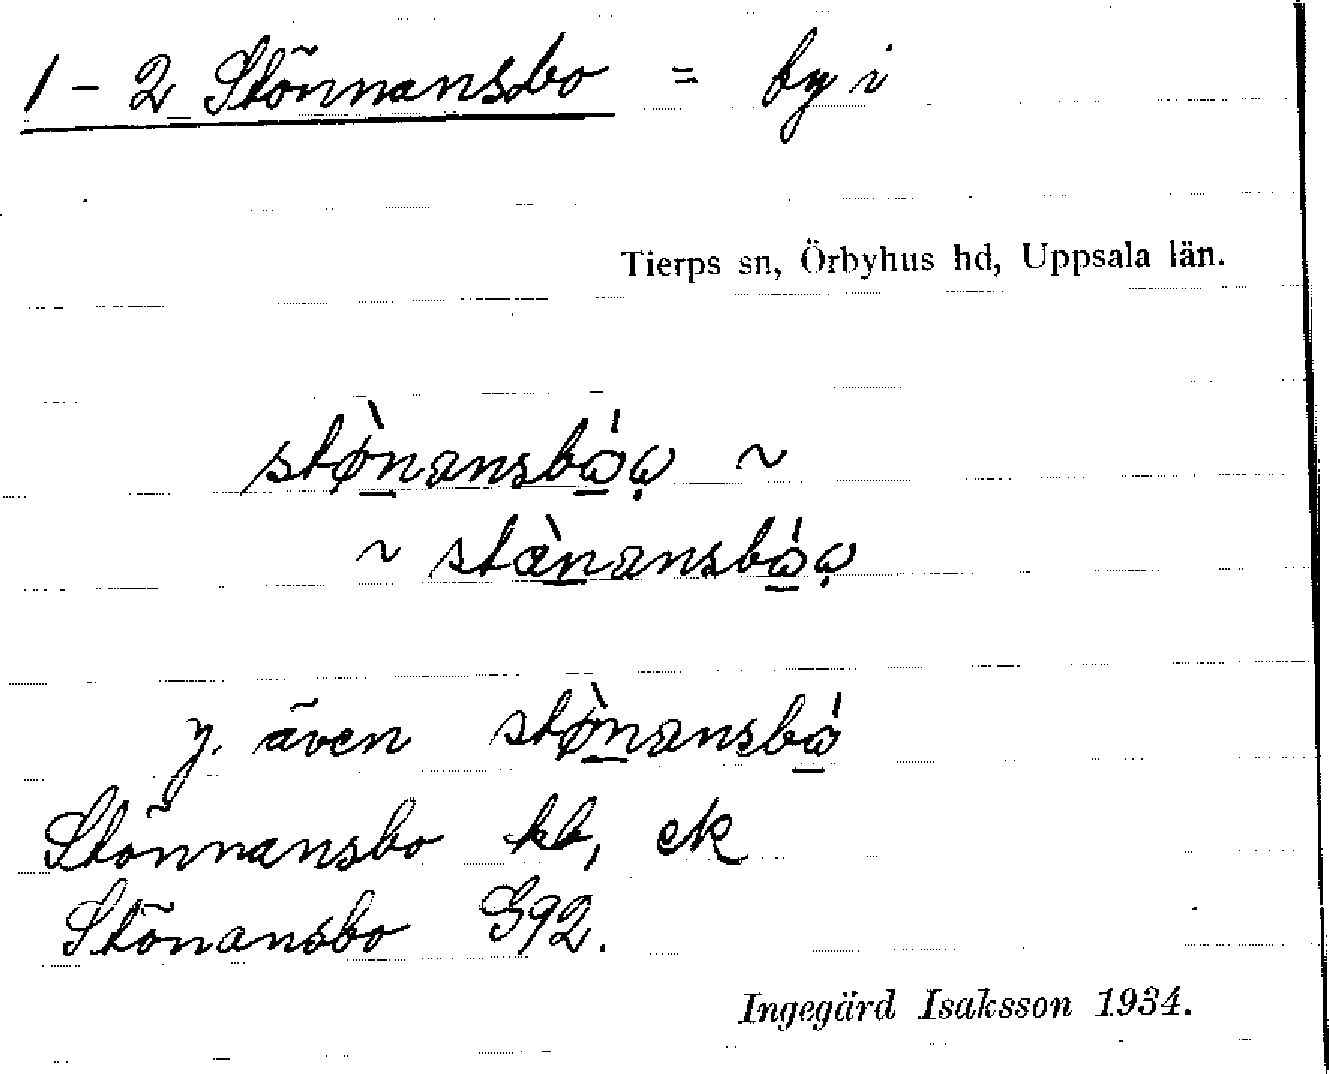 1-2 Stönnansbo = by i
Tierps sn, Örbyhus hd, Uppsala län.
stø̀nansbώ̨ω ~
~ stæ̀nansbώ̨ω
y. även stø̀nansbώ
Stönnansbo kb, ek
Stönansbo G92.
Ingegärd Isaksson 1934.